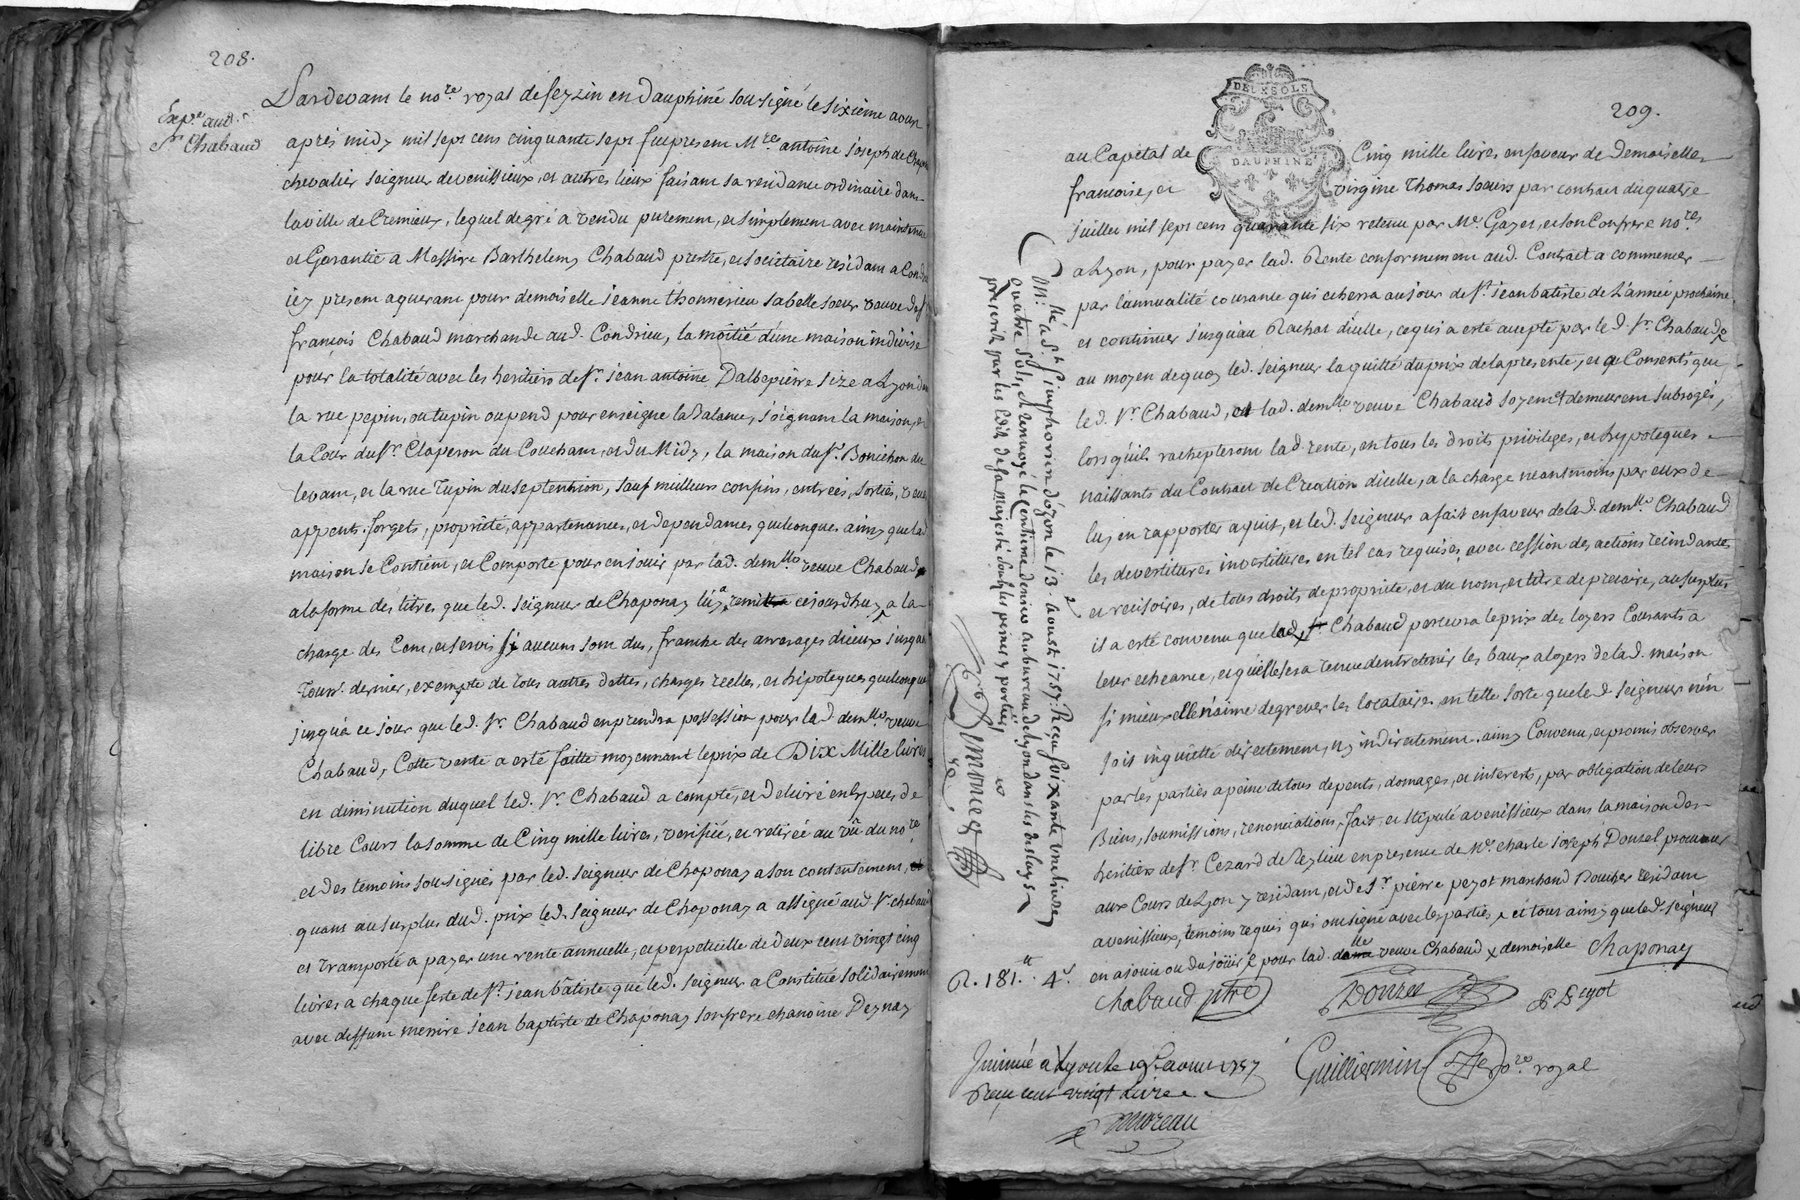 208.
Exp.e aud.
Sr Chabaud
Pardevant le no.re royal de feyzin en Dauphiné soussigné le sixieme aoust
après midy mil sept cens cinquante sept fut present M.re antoine joseph de Chaponay
chevalier seigneur de venissieux, et autres lieux faisant sa residance ordinaire dans
la ville de Cremieux, lequel de gré a vendu purement, et simplement avec maintenue
et Garantie a Messire Barthelemy Chabaud prestre, et sociétaire residant a Cond
iey present aquerant pour demoiselle jeanne thonnerieu sa belle soeur veuve de Sr
françois Chabaud marchande aud. Condrieu, la moitié d'une maison indivise
pour la totalité avec les heritiers de Sr. jean antoine Dalbepierre size a Lyon dans
la rue pepin, ou tupin ou pend pour enseigne la Balance, joignant la maison, et
la Cour du Sr. Claperon du Couchant, et du Midy, la maison du Sr. Bonichon du
levant, et la rue Tupin du septentrion, sauf meilleurs confins, entrées, sorties, veues
appents, forgets, proprieté, appartenances, et dependances quelconques ainsy que lad.
maison se Contient, et Comporte pour en jouir par lad. dem.lle veuve Chabaud
a la forme des titres que led. seigneur de Chaponay luy a remis cejourdhuy, a la
charge des Cens, et servis si aucuns sont dus, franche des arrerages d'iceux jusqua
Touss.t dernier, exempte de tous autres dettes, charges reelles, et hipoteques quelconques
jusqua ce jour que led. Sr. Chabaud en prendra possession pour lad. dem.lle veuve
Chabaud, Cette vente a esté faitte moyennant le prix de Dix Mille livres
en diminution duquel led. Sr. Chabaud a compté, et delivré en Especes de
libre Cours la somme de Cinq mille livres, verifiée, et retirée au vû du no.re
et des temoins soussignés par led. seigneur de Chaponay a son contentement,
quant au surplus dud. prix led. seigneur de Chaponay a assigné aud. Sr. Chabaud
et transporté a payer une rente annuelle, et perpetuelle de deux cent vingt cinq
livres a chaque feste de St. jean bâtiste que led. seigneur a Constitué solidairement
avec deffunt messire jean baptiste de Chaponay son frere chanoine D'eynay
209.
DEUX SOLS
DAUPHINÉ
au Capital de Cinq mille livres en faveur de Demoiselles
françoise, et virgine Thomas soeurs par contract du quatre
juillet mil sept cens quarante six retenu par Me. Gayet, et son Confrere no.res
a Lyon, pour payer lad. Rente conformement aud. Contract a commencer
par l'annualité courante qui echerra au jour de St. jean batiste de L'année prochaine
et continuer jusqu'au Rachat d'icelle, ce qui a esté accepté par led. Sr. Chabaud
au moyen de quoy led. seigneur la quitté du prix de la presente, et a Consenti que
led. Sr. Chabaud, et lad. dem.lle veuve Chabaud soyent et demeurent subrogés,
lorsqu'ils rachepteront lad. rente, en tous les droits privileges, et hypoteques
naissants du Contract de Creation d'icelle, a la charge neantmoins par eux de
luy en rapporter aquit, et led. seigneur a fait en faveur de lad. dem.lle Chabaud
les devestitures investitures en tel cas requises, avec cession des actions recindantes
et recisoires, de tous droits de proprieté, et du nom, et titre de precaire, au surplus
il a esté convenu que led. Sr. Chabaud percevra le prix des loyers Courants a
leur echeance, et quelle sera tenue d'entretenir les baux a loyers de lad. maison
si mieux elle n'aime degrever les locataires en telle sorte que led. seigneur n'en
soit inquietté directement, ny indirectement. ainsy Convenu, et promis observer
par les parties a peine de tous depents, domages, et interets, par obligation de leurs
Biens, soumissions, renonciations, fait, et stipulé a venissieux dans la maison des
heritiers de Sr. Cezard de Peyzieu en presence de Me. charle joseph Donzel procureur
aux Cours de Lyon y residant, et de Sr. pierre peyot marchand Boucher residant
a venissieux, temoins requis qui ont signé avec les parties x et tout ainsy que led. seigneur
en a joui ou du joüir x pour lad. veuve Chabaud x demoiselle Chaponay
Chabaud ptre Donzel P Peyot
Guilliermin no.re royal
M.lle a St. Simphorien d'ozon le 13. aoust 1757. Reçu soixante une livres
quatre sols, et renvoyé le Centieme denier au bureau de lyon dans les delays
prescrits par les Edits de sa Majesté sous les peines y portées
R. 181.tt 4.s
Insinué a Lyon le 19e aoust 1757
Reçu cent vingt livres
moreau